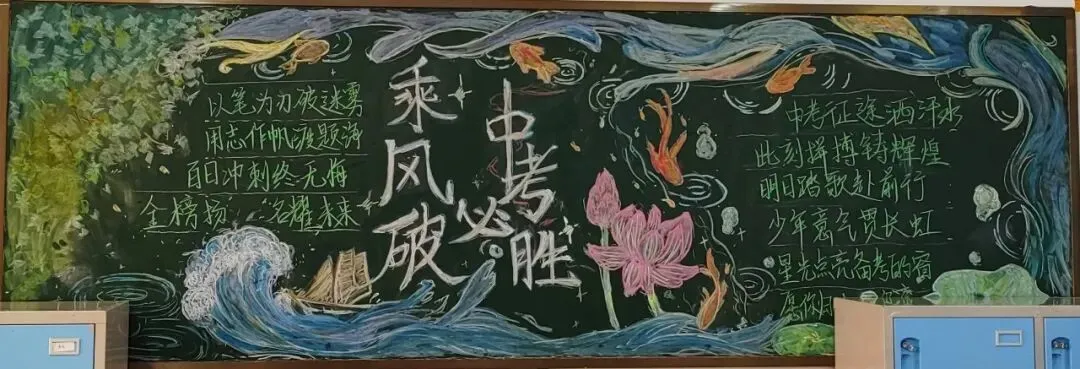 以笔为刃破迷雾
用志作帆渡题海
百日冲刺终无悔
金榜扬 名耀未来
乘风破
中考必胜
中考征途洒汗水
此刻拼搏铸辉煌
明日踏歌赴前行
少年意气贯长虹
星光点亮备考的
愿你